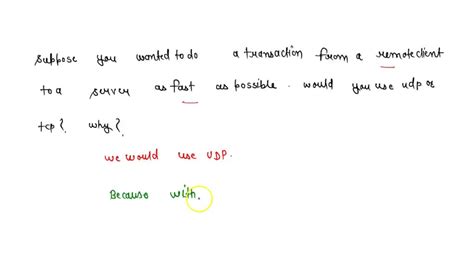 suppose you wanted to do a transaction from a remote client
to a server as fast as possible. would you use udp or
tcp? why?
we would use UDP.
Because with.